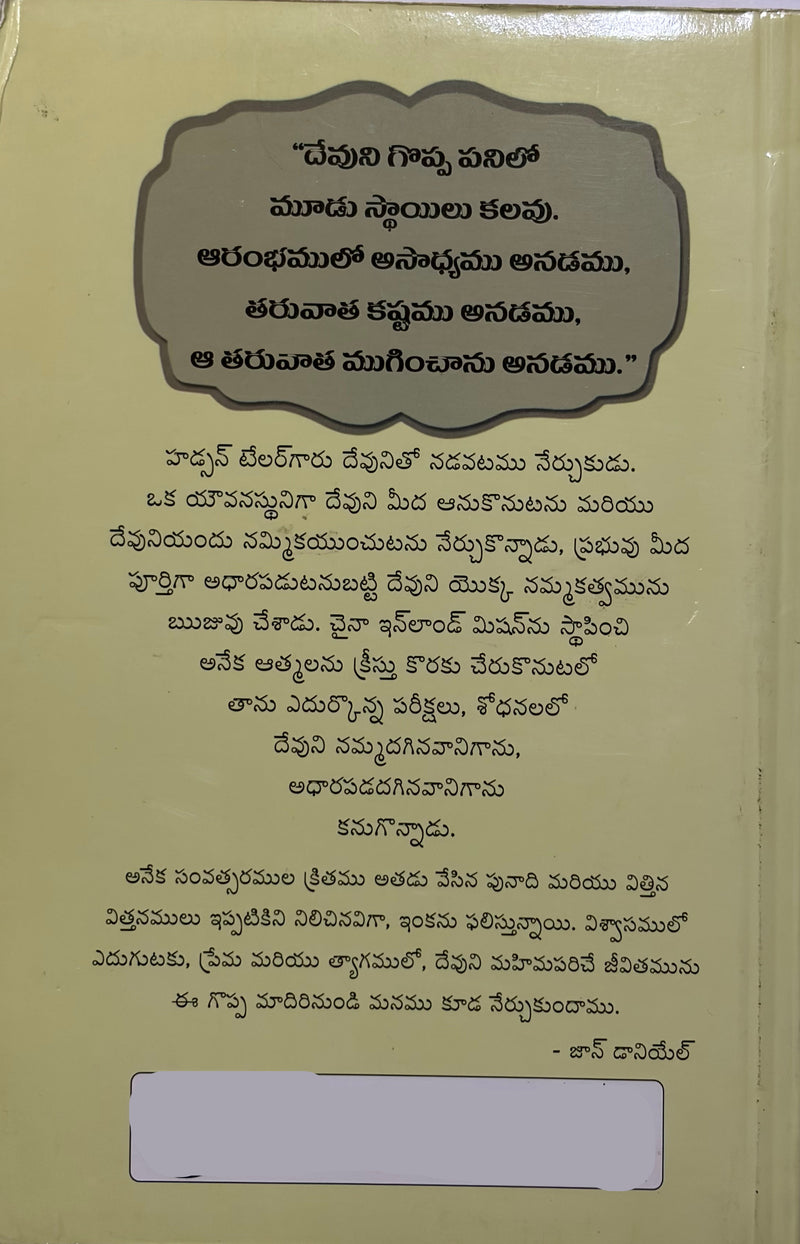 “దేవుని గొప్ప పనిలో
మూడు స్థాయిలు కలవు.
ఆరంభములో అసాధ్యము అనడము,
తరువాత కష్టము అనడము,
ఆ తరువాత ముగించాను అనడము.”
హడ్సన్ టేలర్‌గారు దేవునితో నడవటము నేర్చుకుడు.
ఒక యౌవనస్థునిగా దేవుని మీద ఆనుకొనుటను మరియు
దేవునియందు నమ్మికయుంచుటను నేర్చుకొన్నాడు, ప్రభువు మీద
పూర్తిగా అధారపడుటనుబట్టి దేవుని యొక్క నమ్మకత్వమును
ఋజువు చేశాడు. చైనా ఇన్‌లాండ్ మిషన్‌ను స్థాపించి
అనేక ఆత్మలను క్రీస్తు కొరకు చేరుకొనుటలో
తాను ఎదుర్కొన్న పరీక్షలు, శోధనలలో
దేవుని నమ్మదగినవానిగాను,
అధారపడదగినవానిగాను
కనుగొన్నాడు.
అనేక సంవత్సరముల క్రితము అతడు వేసిన పునాది మరియు విత్తిన
విత్తనములు ఇప్పటికిని నిలిచినవిగా, ఇంకను ఫలిస్తున్నాయి. విశ్వాసములో
ఎదుగుటకు, ప్రేమ మరియు త్యాగములో, దేవుని మహిమపరిచే జీవితమును
ఈ గొప్ప మాదిరినుండి మనము కూడ నేర్చుకుందాము.
- జాన్ డానియేల్